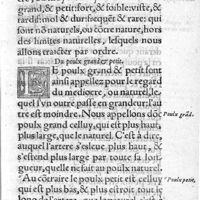 grand, & petit: fort, & foible: viste, &
tardif: mol & dur: frequēt & rare: qui
sont nō naturels, ou cōtre nature, hors
des limites naturelles, lesquels nous
allons traicter par ordre.
Du poulx grand & petit.
LE poulx grand & petit sont
ainsi appellez pour le regard
du mediocre, ou naturel, les-
quel l'vn outre passe en grandeur: l'au
tre est moindre. Nous appellons dōc
poulx grand celluy, qui est plus haut,
plus large, que le naturel. C'est à dire,
auquel l'artere s'esleue plus haut, &
s'estend plus large par toute sa lon-
gueur, quelle ne fait au poulx naturel.
Au cōtraire le poulx petit, est celluy
qui est plus bas, & plus estroit tout le
long de l'artere
Poulx grād.
Poulx petit.